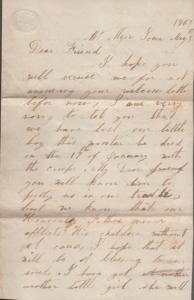 186
Mt. Ayr Iowa May
Dear Friend
I hope you
will excuse me for not
answering your welcome letter
before now, I am very
sorry to let you that
we have lost our little
boy this winter he died
on the 19 of January with
the croup My Dear friend
you will know him to
pretty as on our
but we know that our
Heavenly Father never
afflicts His children without
a cause, I hope that it
will be of blessing to our
souls I have got
another little girl she will